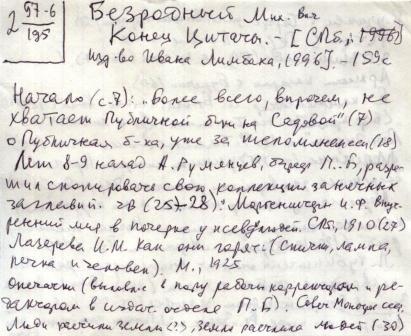 2 97-6
195
Безродный Мих. Вяч.
Конец Цитаты. - [СПб., 1996]
Изд-во Ивана Лимбаха, 1996]. - 159с
Начало (с. 7): "Более всего, впрочем, не
хватает Публичной б-ки на Садовой" (7)
о Публичная б-ка, уже за шепом (18)
Лет 8-9 назад А. Румянцев, П. Б, разре-
шил скопировать свою коллекцию занечных
заглавий. (25-28): Моргенштиерн И.Ф. Внут-
ренний мир в почерке у людей. СПб, 1910 (27)
Лазарева И.М. Как они горят: (Спичка, лампа,
печка и человек). М., 1925
опечатки (выловл. в пору работы корректором и ре-
дактором в издат. отделе П. Б).
Люди растили земли (2), земля растила людей (-30)